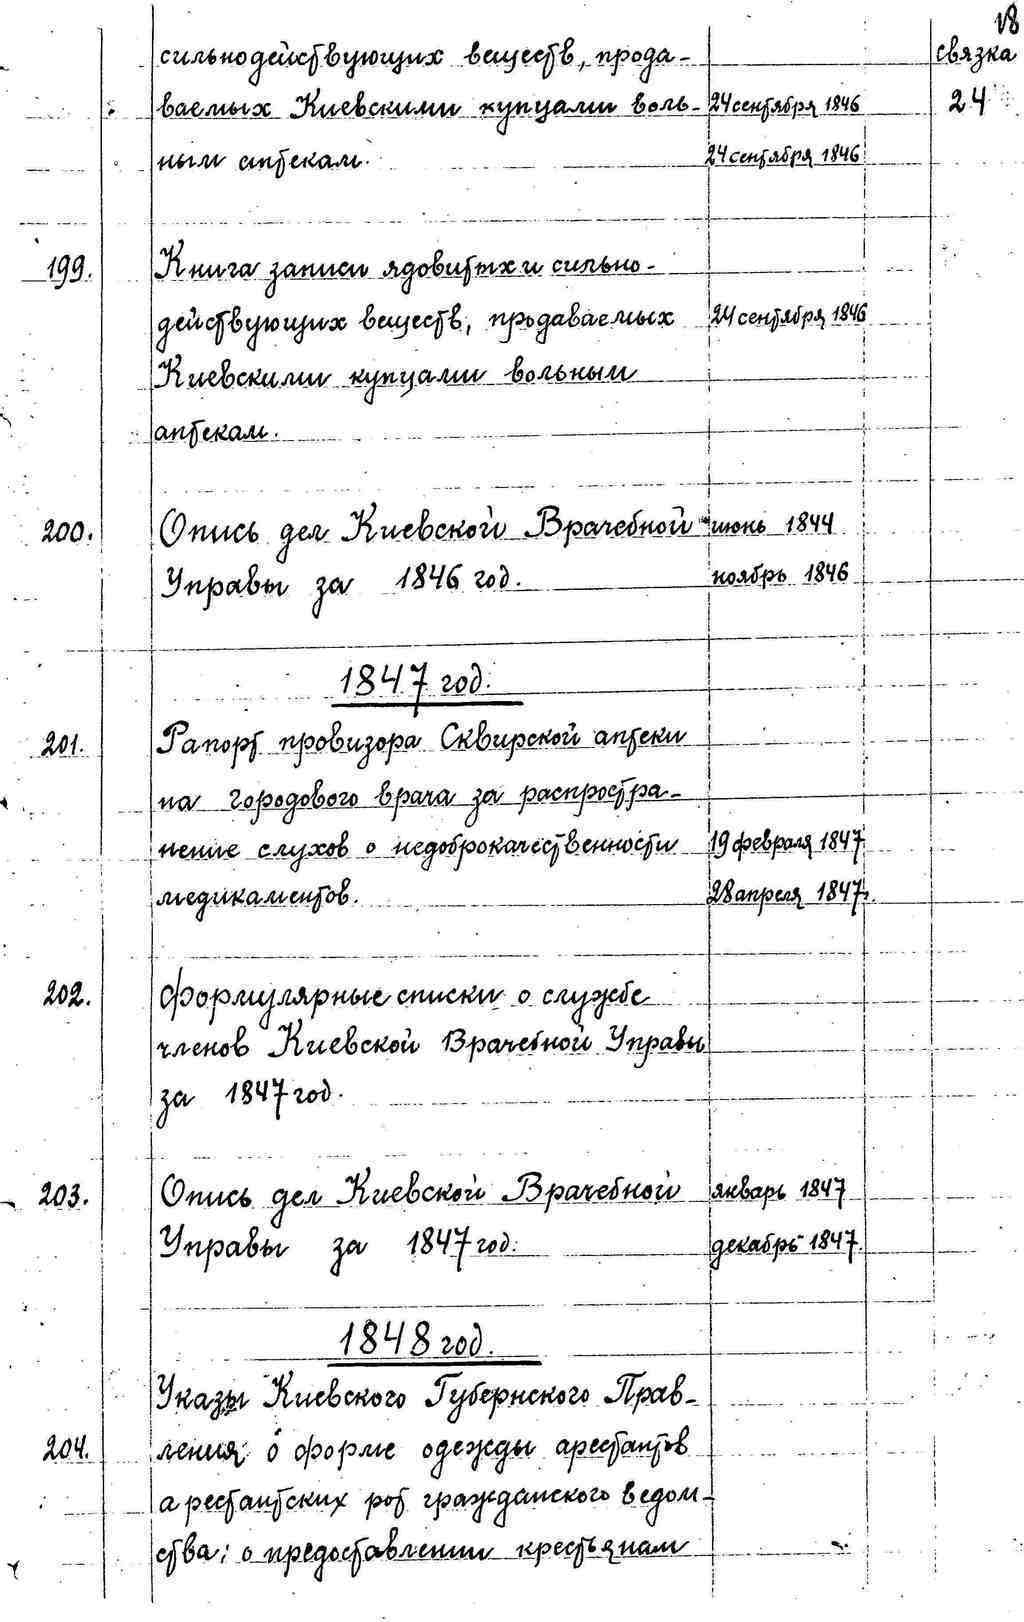 18
сильнодействующих веществ, прода- связка
ваемых Киевскими купцами воль- 24 сентября 1846 24
ным аптекам. 24 сентября 1846
199. Книга записи ядовитых и сильно-
действующих веществ, продаваемых 24 сентября 1846
Киевскими купцами вольным
аптекам.
200. Опись дел Киевской Врачебной июнь 1844
Управы за 1846 год. ноябрь 1846
1847 год.
201. Рапорт провизора Сквирской аптеки
на городового врача за распростра-
нение слухов о недоброкачественности 19 февраля 1847
медикаментов. 28 апреля 1847.
202. Формулярные списки о службе
членов Киевской Врачебной Управы
за 1847 год.
203. Опись дел Киевской Врачебной январь 1847
Управы за 1847 год. декабрь 1847.
1848 год.
Указы Киевского Губернского Прав-
204. ления: о форме одежды арестантов
арестантских рот гражданского ведом-
ства; о предоставлении крестьянам